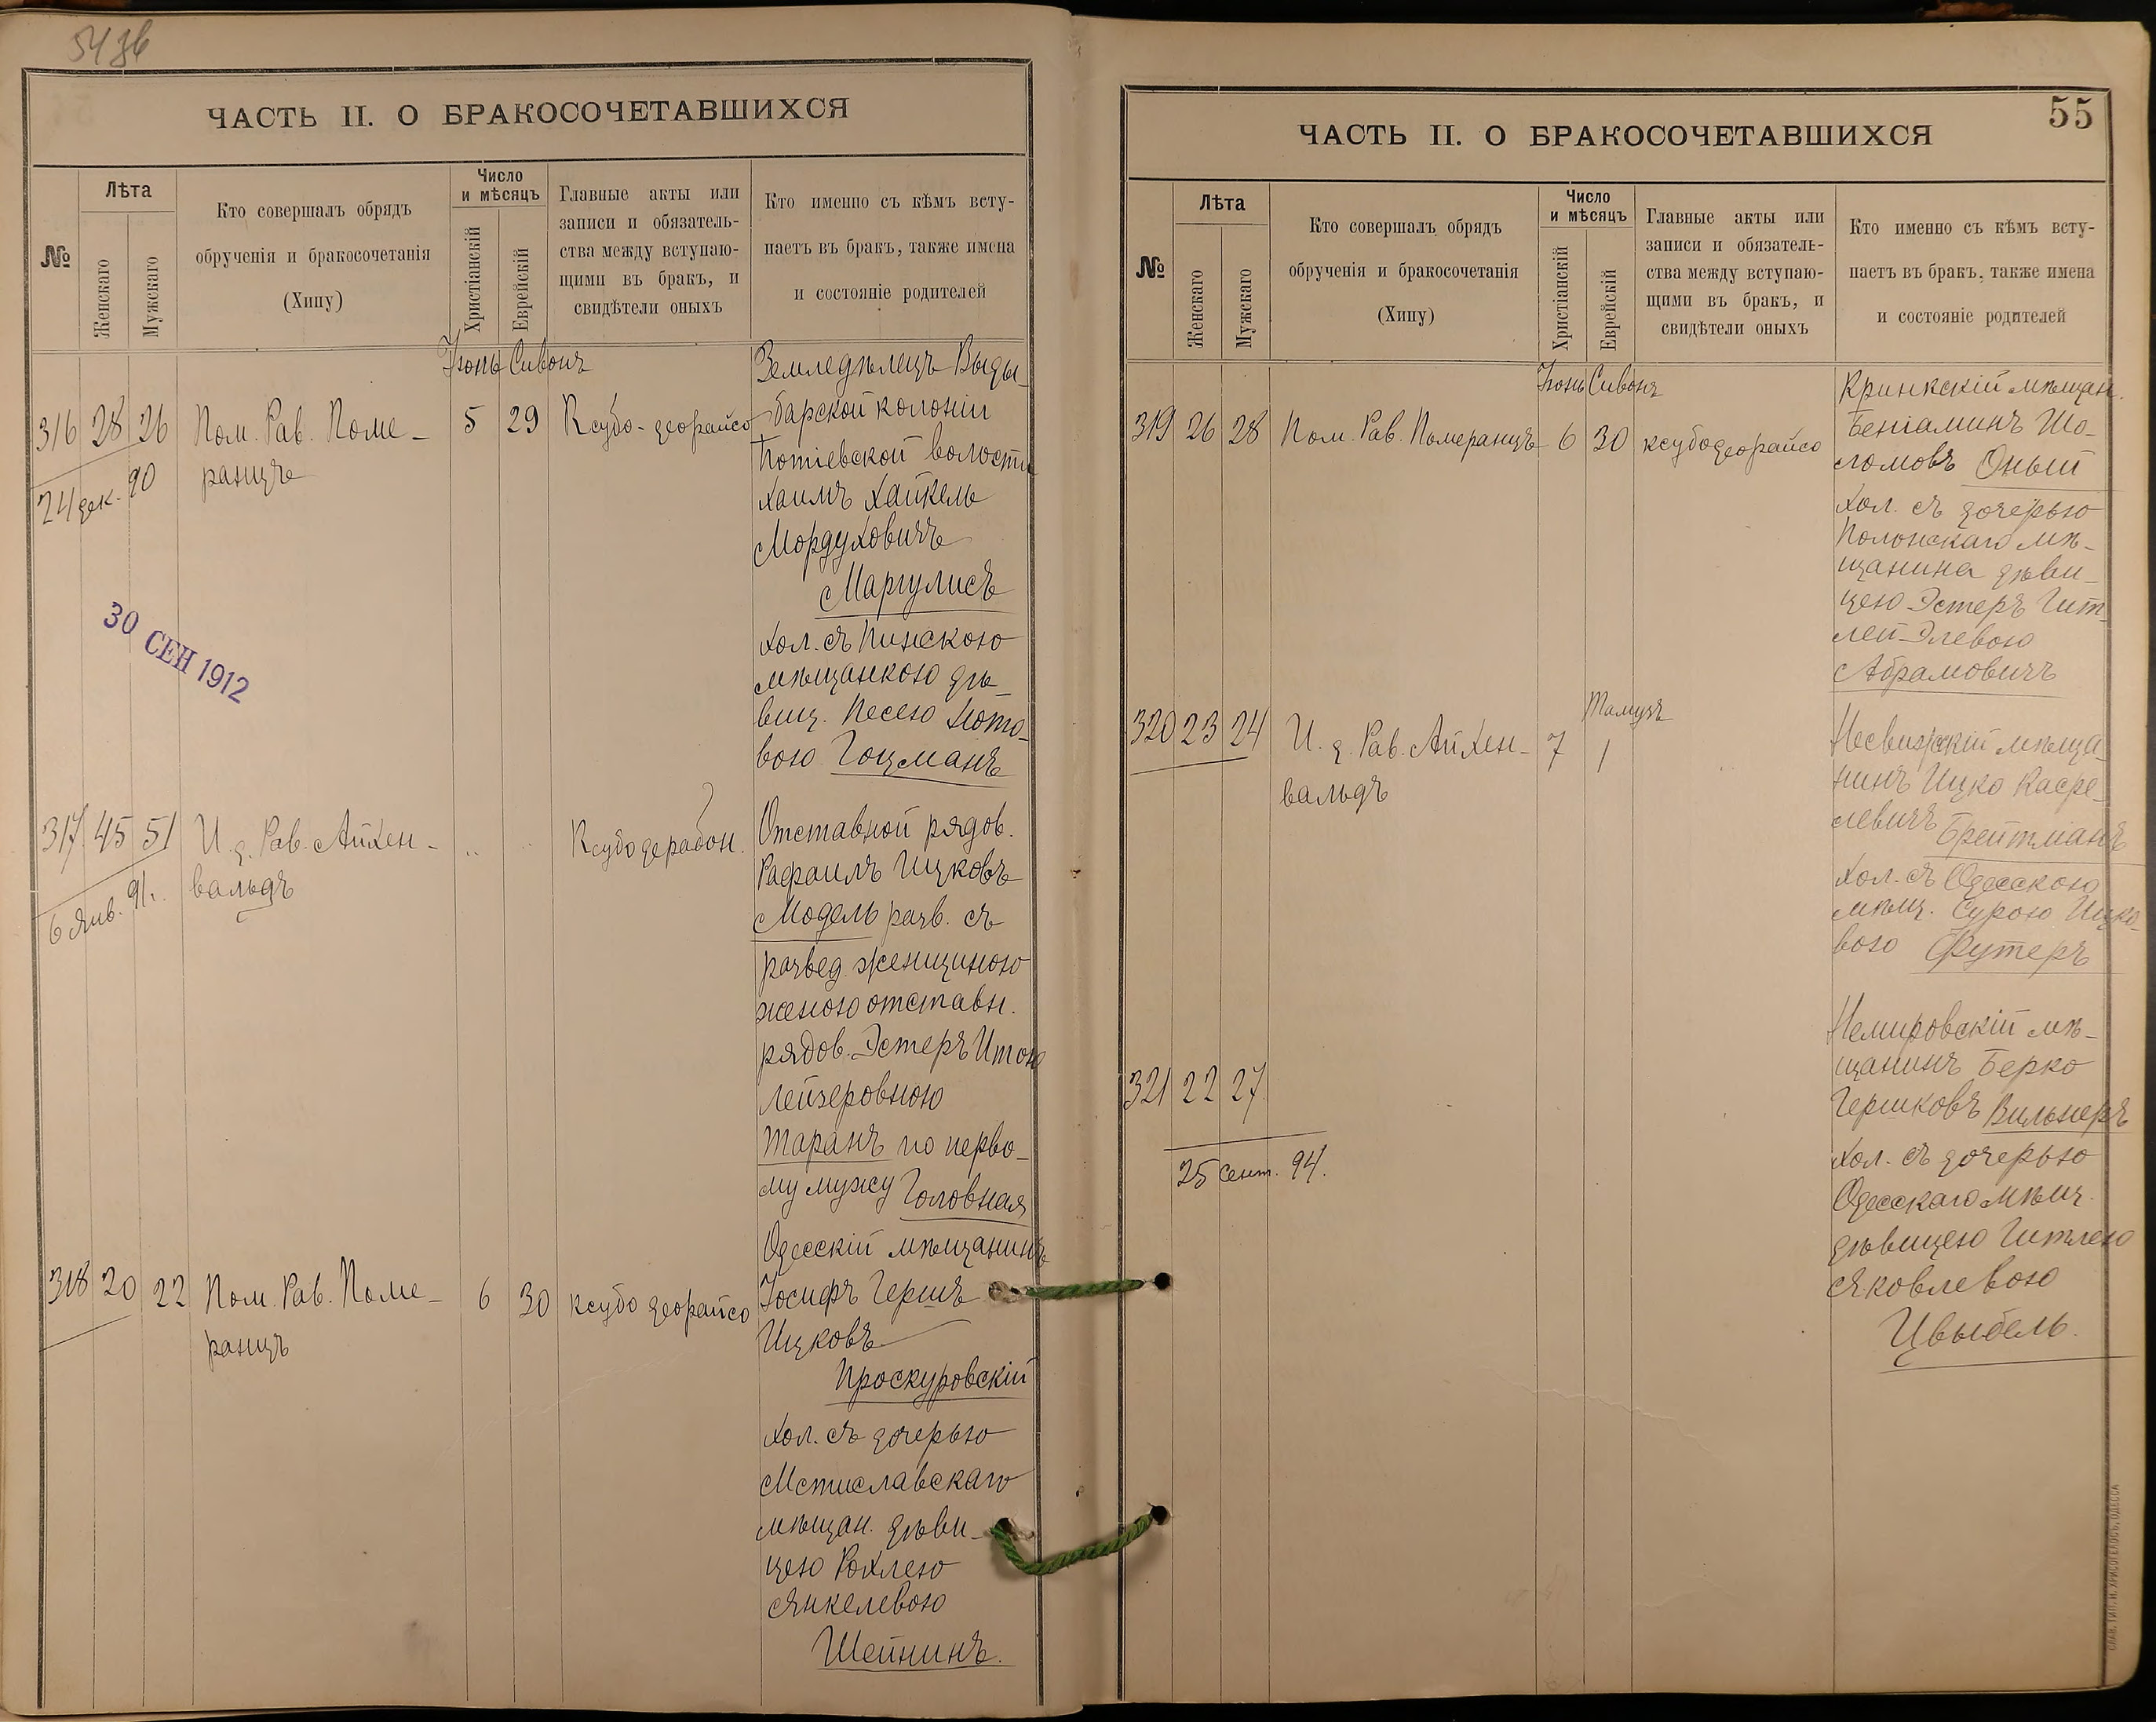 54 зв
ЧАСТЬ II. О БРАКОСОЧЕТАВШИХСЯ
№
Лѣта
Женскаго
Мужскаго
Кто совершалъ обрядъ
обрученія и бракосочетанія
(Хипу)
Число
и мѣсяцъ
Христіанскій
Еврейскій
Главные акты или
записи и обязатель-
ства между вступаю-
щими въ бракъ, и
свидѣтели оныхъ
Кто именно съ кѣмъ всту-
паетъ въ бракъ, также имена
и состояніе родителей
Іюнь Сивонъ
316 28 26
24 дек. 90
Пом. Рав. Поме-
ранцъ
5 29
Ксубо-деорайсо
Земледѣлецъ Выды-
барской колоніи
Потіевской волости
Хаимъ Хайкель
Мордуховичъ
Маргулисъ
хол. съ Пинскою
мѣщанкою дѣ-
виц. Песею Ното-
вою Гоцманъ
30 СЕН 1912
317 45 51
6 Янв. 91.
И. д. Рав. Айхен-
вальдъ
" "
Ксубо дерабон.
Отставной рядов.
Рафаилъ Ицковъ
Модель разв. съ
развед. женщиною
женою отставн.
рядов. Эстеръ Итою
Лейзеровною
Таранъ по перво-
му мужу Головная
318 20 22
Пом. Рав. Поме-
ранцъ
6 30
ксубо деорайсо
Одесскій мѣщанинъ
Іосифъ Гершъ
Ицковъ
Проскуровскій
хол. съ дочерью
Мстиславскаго
мѣщан. дѣви-
цею Рохлею
Янкелевою
Шейнинъ.
55
ЧАСТЬ II. О БРАКОСОЧЕТАВШИХСЯ
№
Лѣта
Женскаго
Мужскаго
Кто совершалъ обрядъ
обрученія и бракосочетанія
(Хипу)
Число
и мѣсяцъ
Христіанскій
Еврейскій
Главные акты или
записи и обязатель-
ства между вступаю-
щими въ бракъ, и
свидѣтели оныхъ
Кто именно съ кѣмъ всту-
паетъ въ бракъ, также имена
и состояніе родителей
Іюнь Сивонъ
319 26 28
Пом. Рав. Померанцъ
6 30
ксубо деорайсо
Кринкскій мѣщан.
Беніаминъ Шо-
ломовъ Оный
хол. съ дочерью
Полонскаго мѣ-
щанина дѣви-
цею Эстеръ Гит-
лей-Элевою
Абрамовичъ
Тамузъ
320 23 24
И. д. Рав. Айхен-
вальдъ
7 1
Несвижскій мѣща-
нинъ Ицко Касре-
левичъ Брейтманъ
хол. съ Одесскою
мѣщ. Сурою Ицко-
вою Футеръ
321 22 27
25 Сент. 94.
Немировскій мѣ-
щанинъ Берко
Гершковъ Вильнеръ
хол. съ дочерью
Одесскаго мѣщ.
дѣвицею Гитлею
Яковлевою
Цвыбель.
СЛАВ. ТИП. Н. ХРИСОГЕЛОСЪ, ОДЕССА